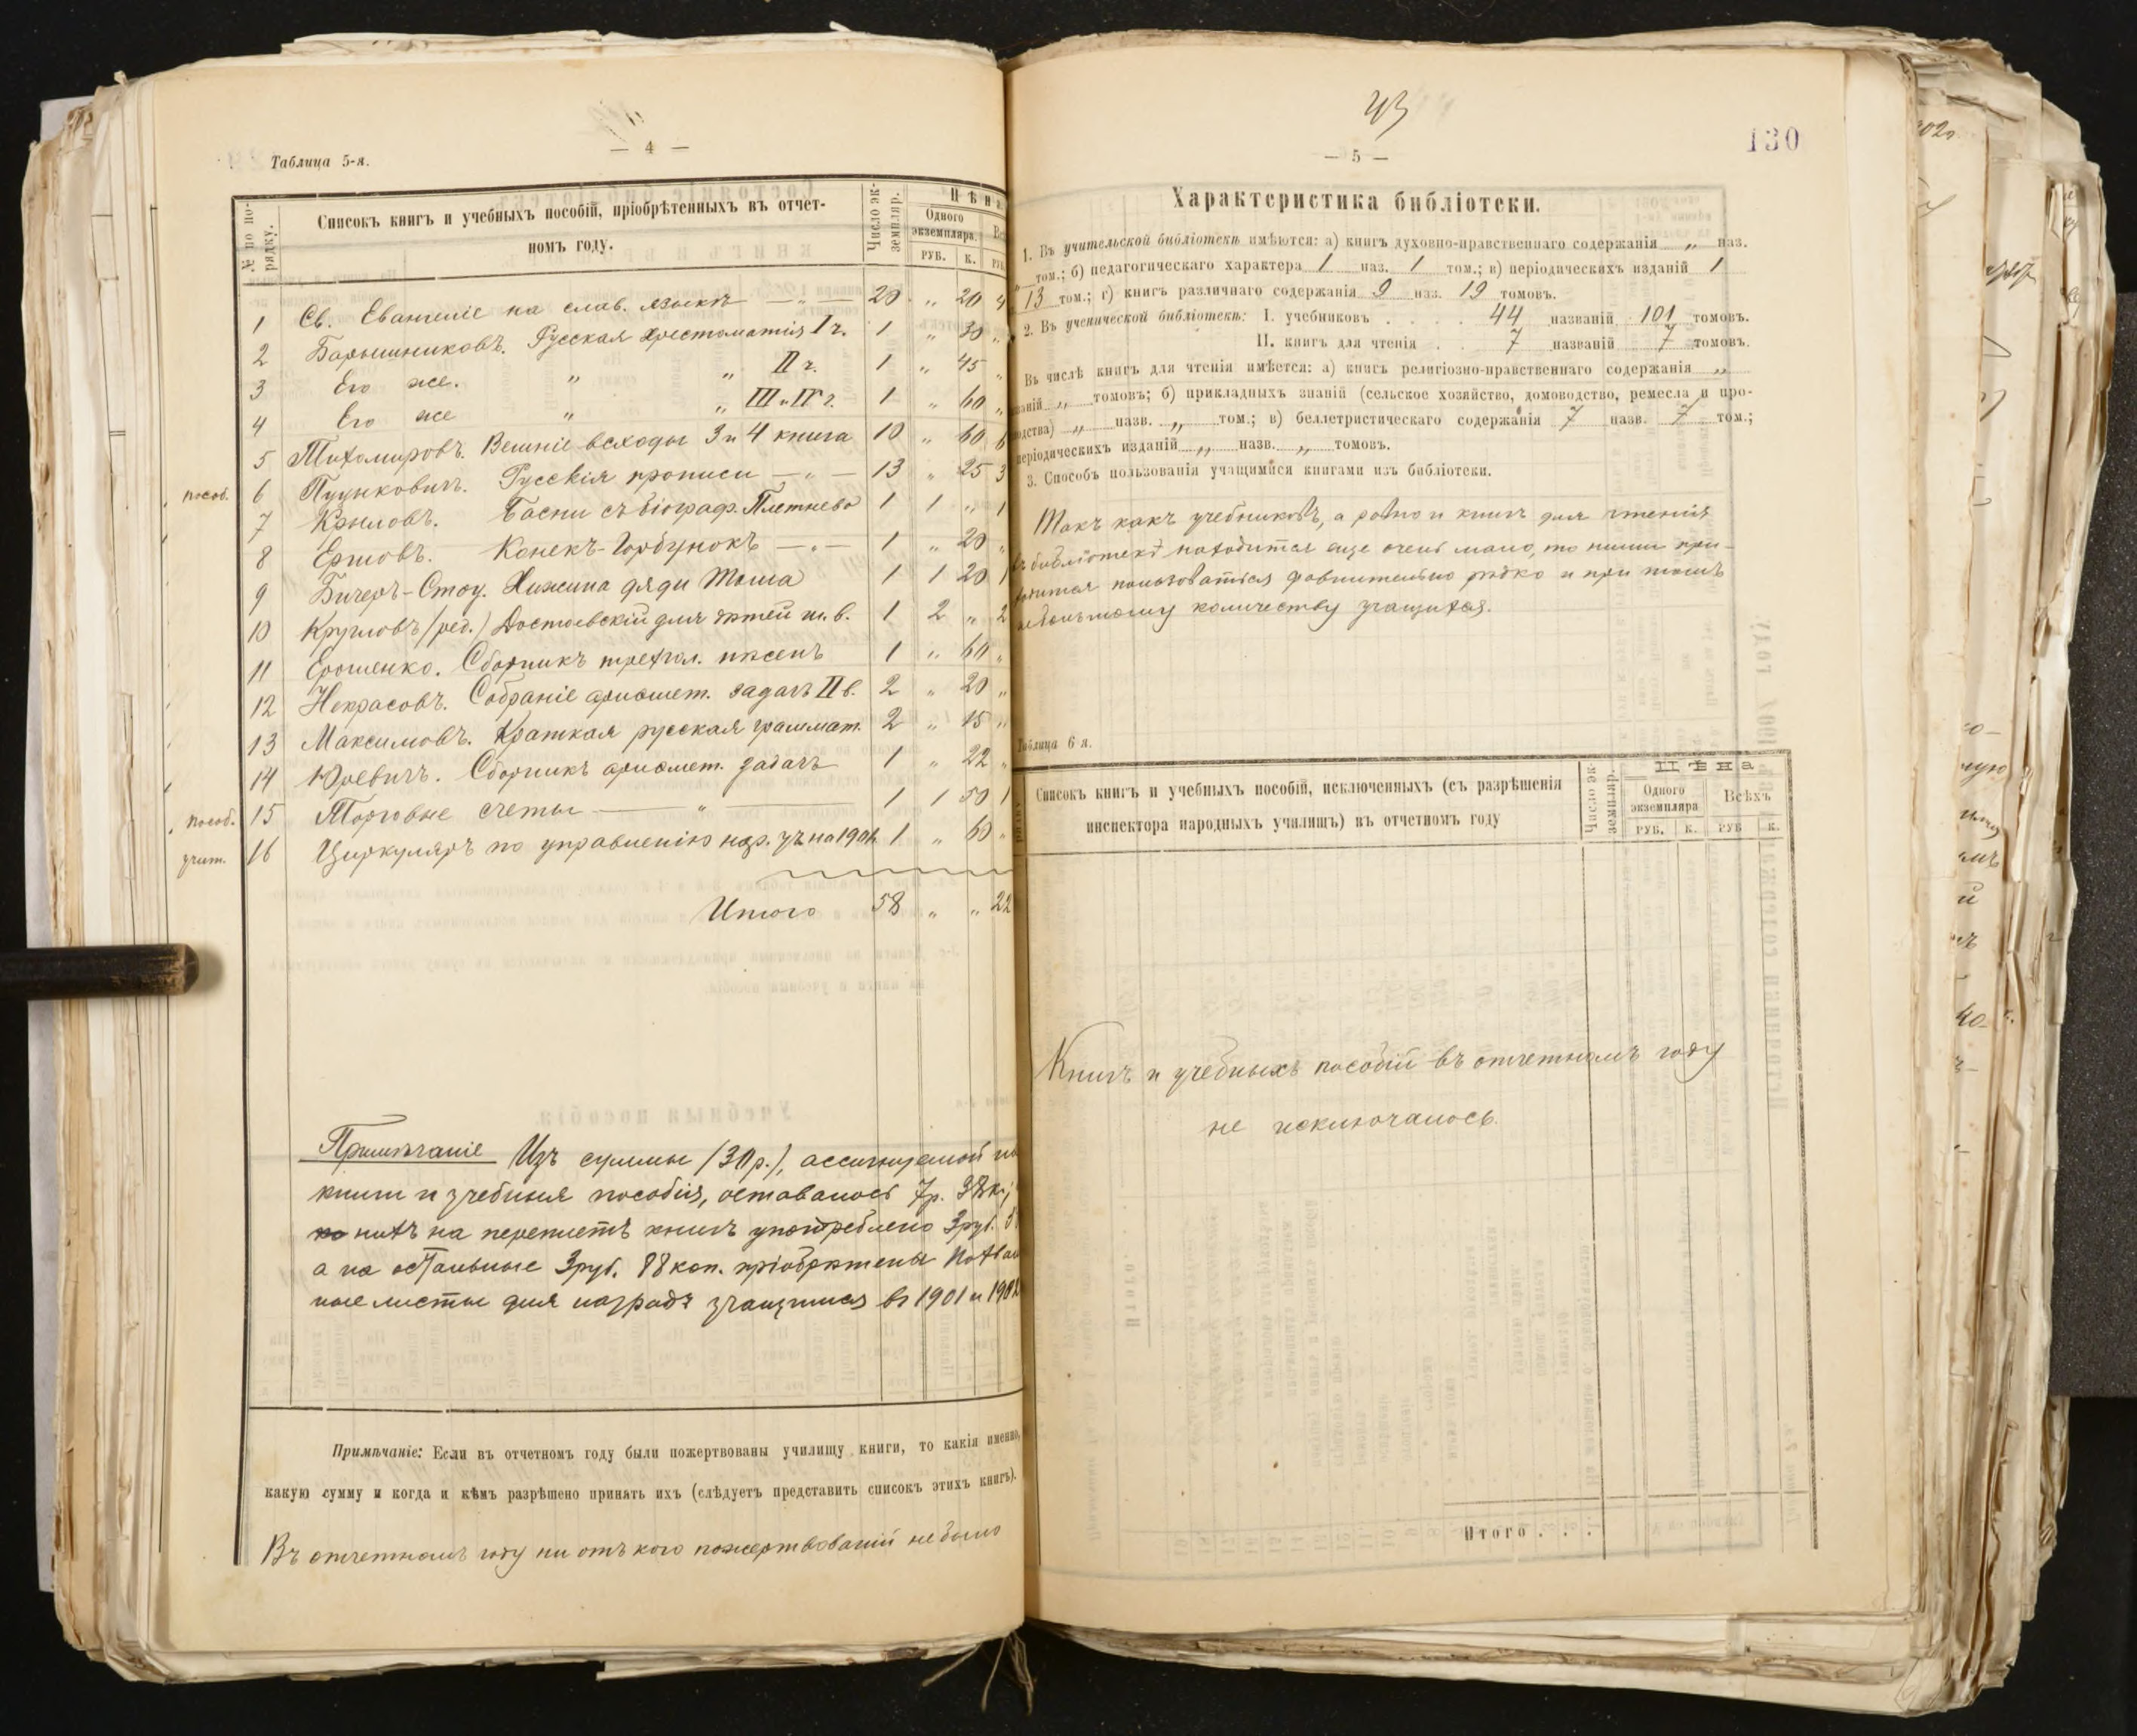 — 4 —
Таблица 5-я.
№ по порядку.
Списокъ книгъ и учебныхъ пособій, пріобрѣтенныхъ въ отчет-
номъ году.
Число экземпляр.
Цѣна
Одного
экземпляра.
РУБ. К.
1 Св. Евангеліе на слав. языкѣ — „ — 20 „ 20 4
2 Барышниковъ. Русская хрестоматія I ч. 1 „ 30 „
3 Его же. „ „ II ч. 1 „ 45 „
4 Его же „ „ III и IV ч. 1 „ 60 „
5 Тихомировъ. Вешніе всходы 3 и 4 книга 10 „ 60 6
пособ. 6 Пуцыковичъ. Русскія прописи — „ — 13 „ 25 3
7 Крыловъ. Басни съ біограф. Плетнева 1 1 „ 1
8 Ершовъ. Конекъ-Горбунокъ — „ — 1 „ 20 „
9 Бичеръ-Стоу. Хижина дяди Тома 1 1 20 1
10 Кругловъ (ред.) Достоевскій для дѣтей ш. в. 1 2 „ 2
11 Ерошенко. Сборникъ трехгол. пѣсенъ 1 „ 60 „
12 Некрасовъ. Собраніе ариѳмет. задачъ II в. 2 „ 20 „
13 Максимовъ. Краткая русская граммат. 2 „ 15 „
14 Юревичъ. Сборникъ ариѳмет. задачъ 1 „ 22 „
пособ. 15 Торговые счеты — „ — 1 1 50 1
учит. 16 Циркуляръ по управленію на 1901 1 „ 60 „
Итого 58 „ „ 22
Примѣчаніе Изъ суммы (30 р.), ассигнуемой на
книги и учебныя пособія, оставалось 7 р.
нихъ на переплетъ книгъ употреблено 3 руб.
а на остальные 3 руб. 88 коп. пріобрѣтены Похваль
ные листы для наградъ учащимся въ 1901 и
Примѣчаніе: Если въ отчетномъ году были пожертвованы училищу книги, то какія именно,
какую сумму и когда и кѣмъ разрѣшено принять ихъ (слѣдуетъ представить списокъ этихъ книгъ).
Въ отчетномъ году ни отъ кого пожертвованій не было
130
— 5 —
Характеристика библіотеки.
1. Въ учительской библіотекѣ имѣются: а) книгъ духовно-нравственнаго содержанія „ наз.
„ том.; б) педагогическаго характера 1 наз. 1 том.; в) періодическихъ изданій 1
13 том.; г) книгъ различнаго содержанія 9 наз. 19 томовъ.
2. Въ ученической библіотекѣ: I. учебниковъ . . . . 44 названій 101 томовъ.
II. книгъ для чтенія . . 7 названій 7 томовъ.
Въ числѣ книгъ для чтенія имѣется: а) книгъ религіозно-нравственнаго содержанія „
ваній „ томовъ; б) прикладныхъ знаній (сельское хозяйство, домоводство, ремесла и про-
водства) „ назв. „ том.; в) беллетристическаго содержанія 7 назв. 7 том.;
періодическихъ изданій „ назв. „ томовъ.
3. Способъ пользованія учащимися книгами изъ библіотеки.
Такъ какъ учебниковъ, а равно и книгъ для чтенія
въ библіотекѣ находится еще очень мало, то ними при-
ходится пользоваться сравнительно рѣдко и при томъ
небольшому количеству учащихся.
Таблица 6-я.
Списокъ книгъ и учебныхъ пособій, исключенныхъ (съ разрѣшенія
инспектора народныхъ училищъ) въ отчетномъ году
Число экземпляр.
Цѣна
Одного экземпляра Всѣхъ
РУБ. К. РУБ К.
Книгъ и учебныхъ пособій въ отчетномъ году
не исключалось.
Итого . . .